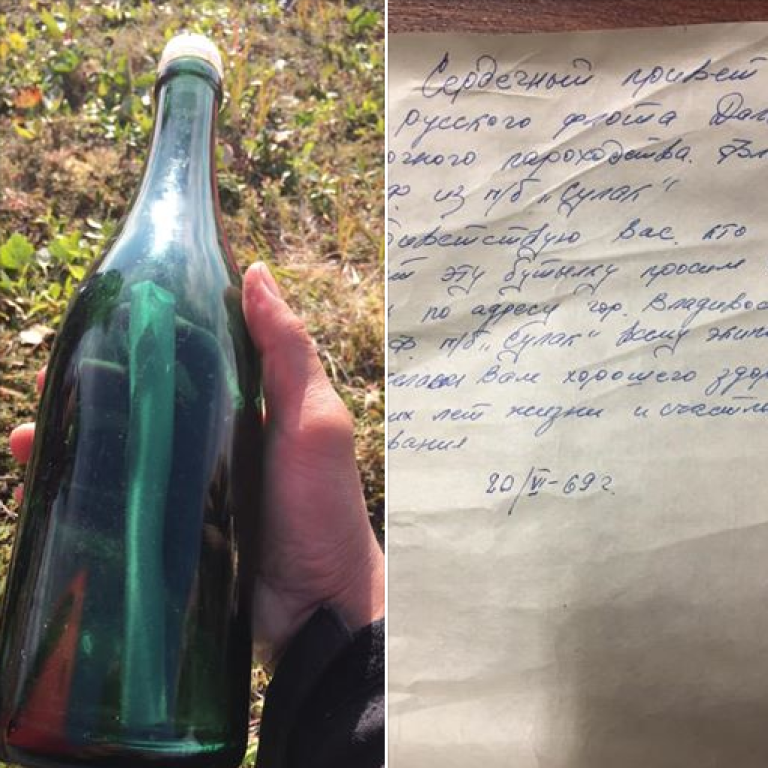 Сердечный привет
русского флота Дал
очного пароходства. Вл
из п/б „Сулак“
ветствую Вас, кто
эту бутылку просим
по адресу гор. Владивос
п/б „Сулак“ всему экип
Вам хорошего здор
их лет жизни и счастли
вания
20/VI-69г.